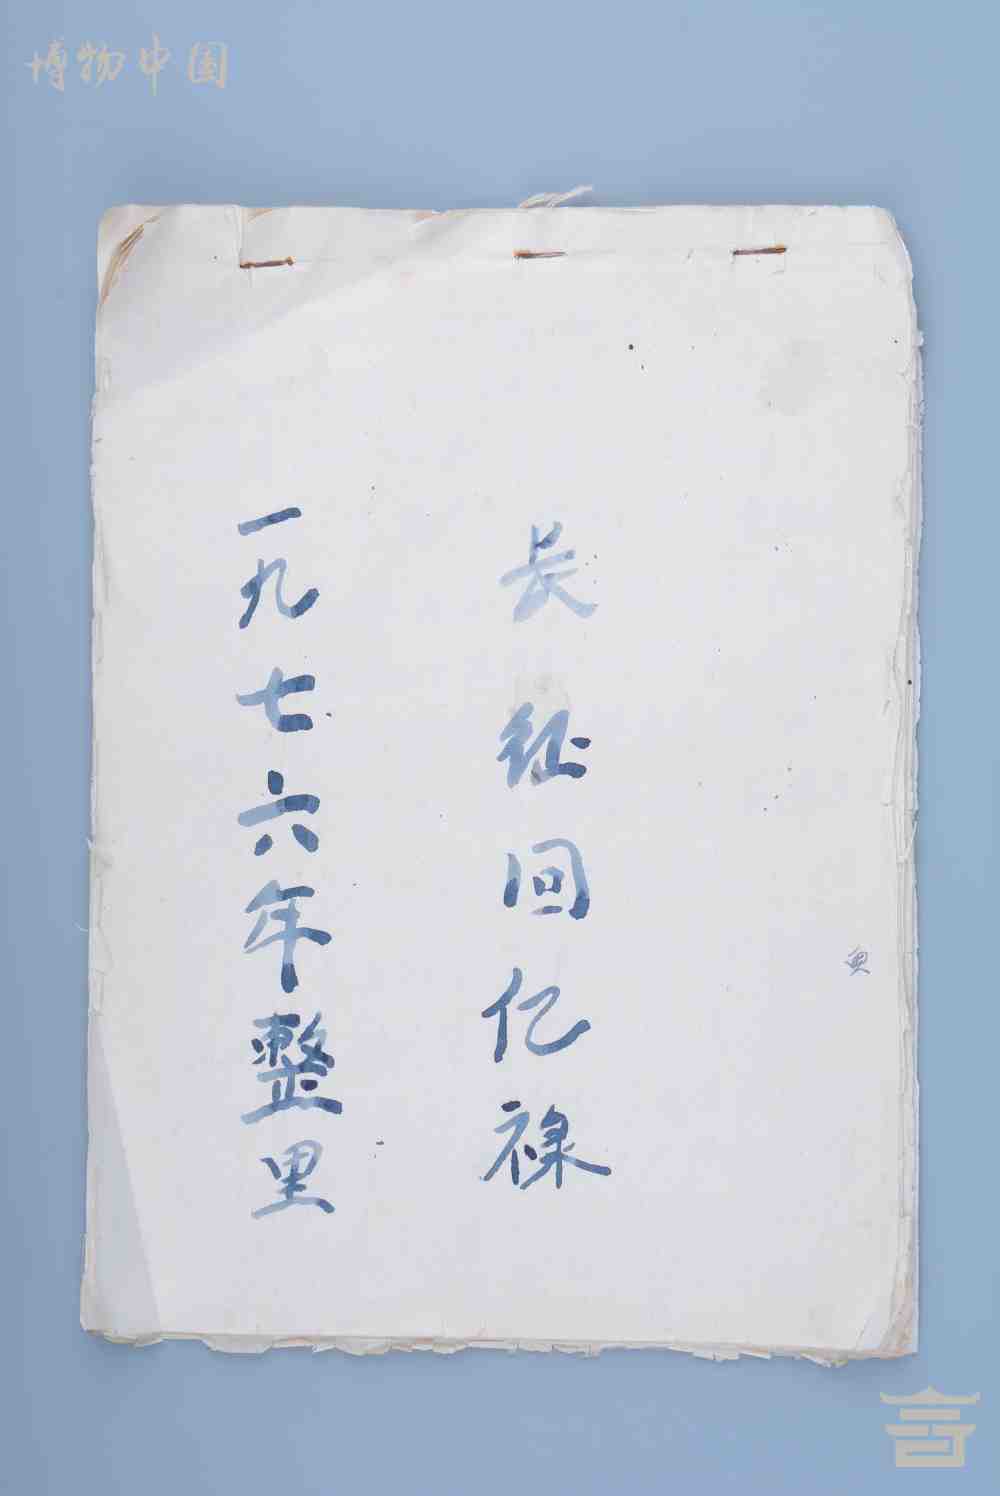 博物中国
长征回亿禄
一九七六年整里